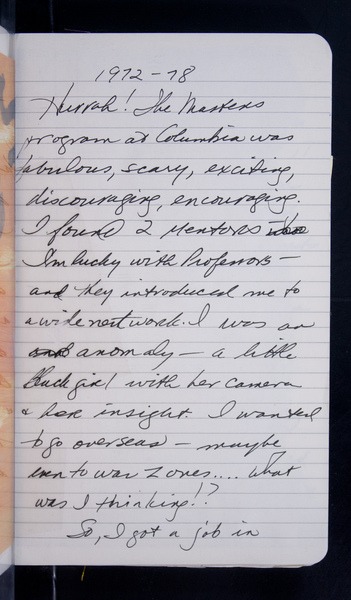 1972-78
Hurrah! The Masters
program at Columbia was
fabulous, scary, exciting,
discouraging, encouraging.
I found 2 mentors
I'm lucky with Professors -
and they introduced me to
a wide network. I was an
anomaly - a little
Black girl with her camera
& her insight. I wanted
to go overseas - maybe
even to war zones.... What
was I thinking!?
So, I got a job in